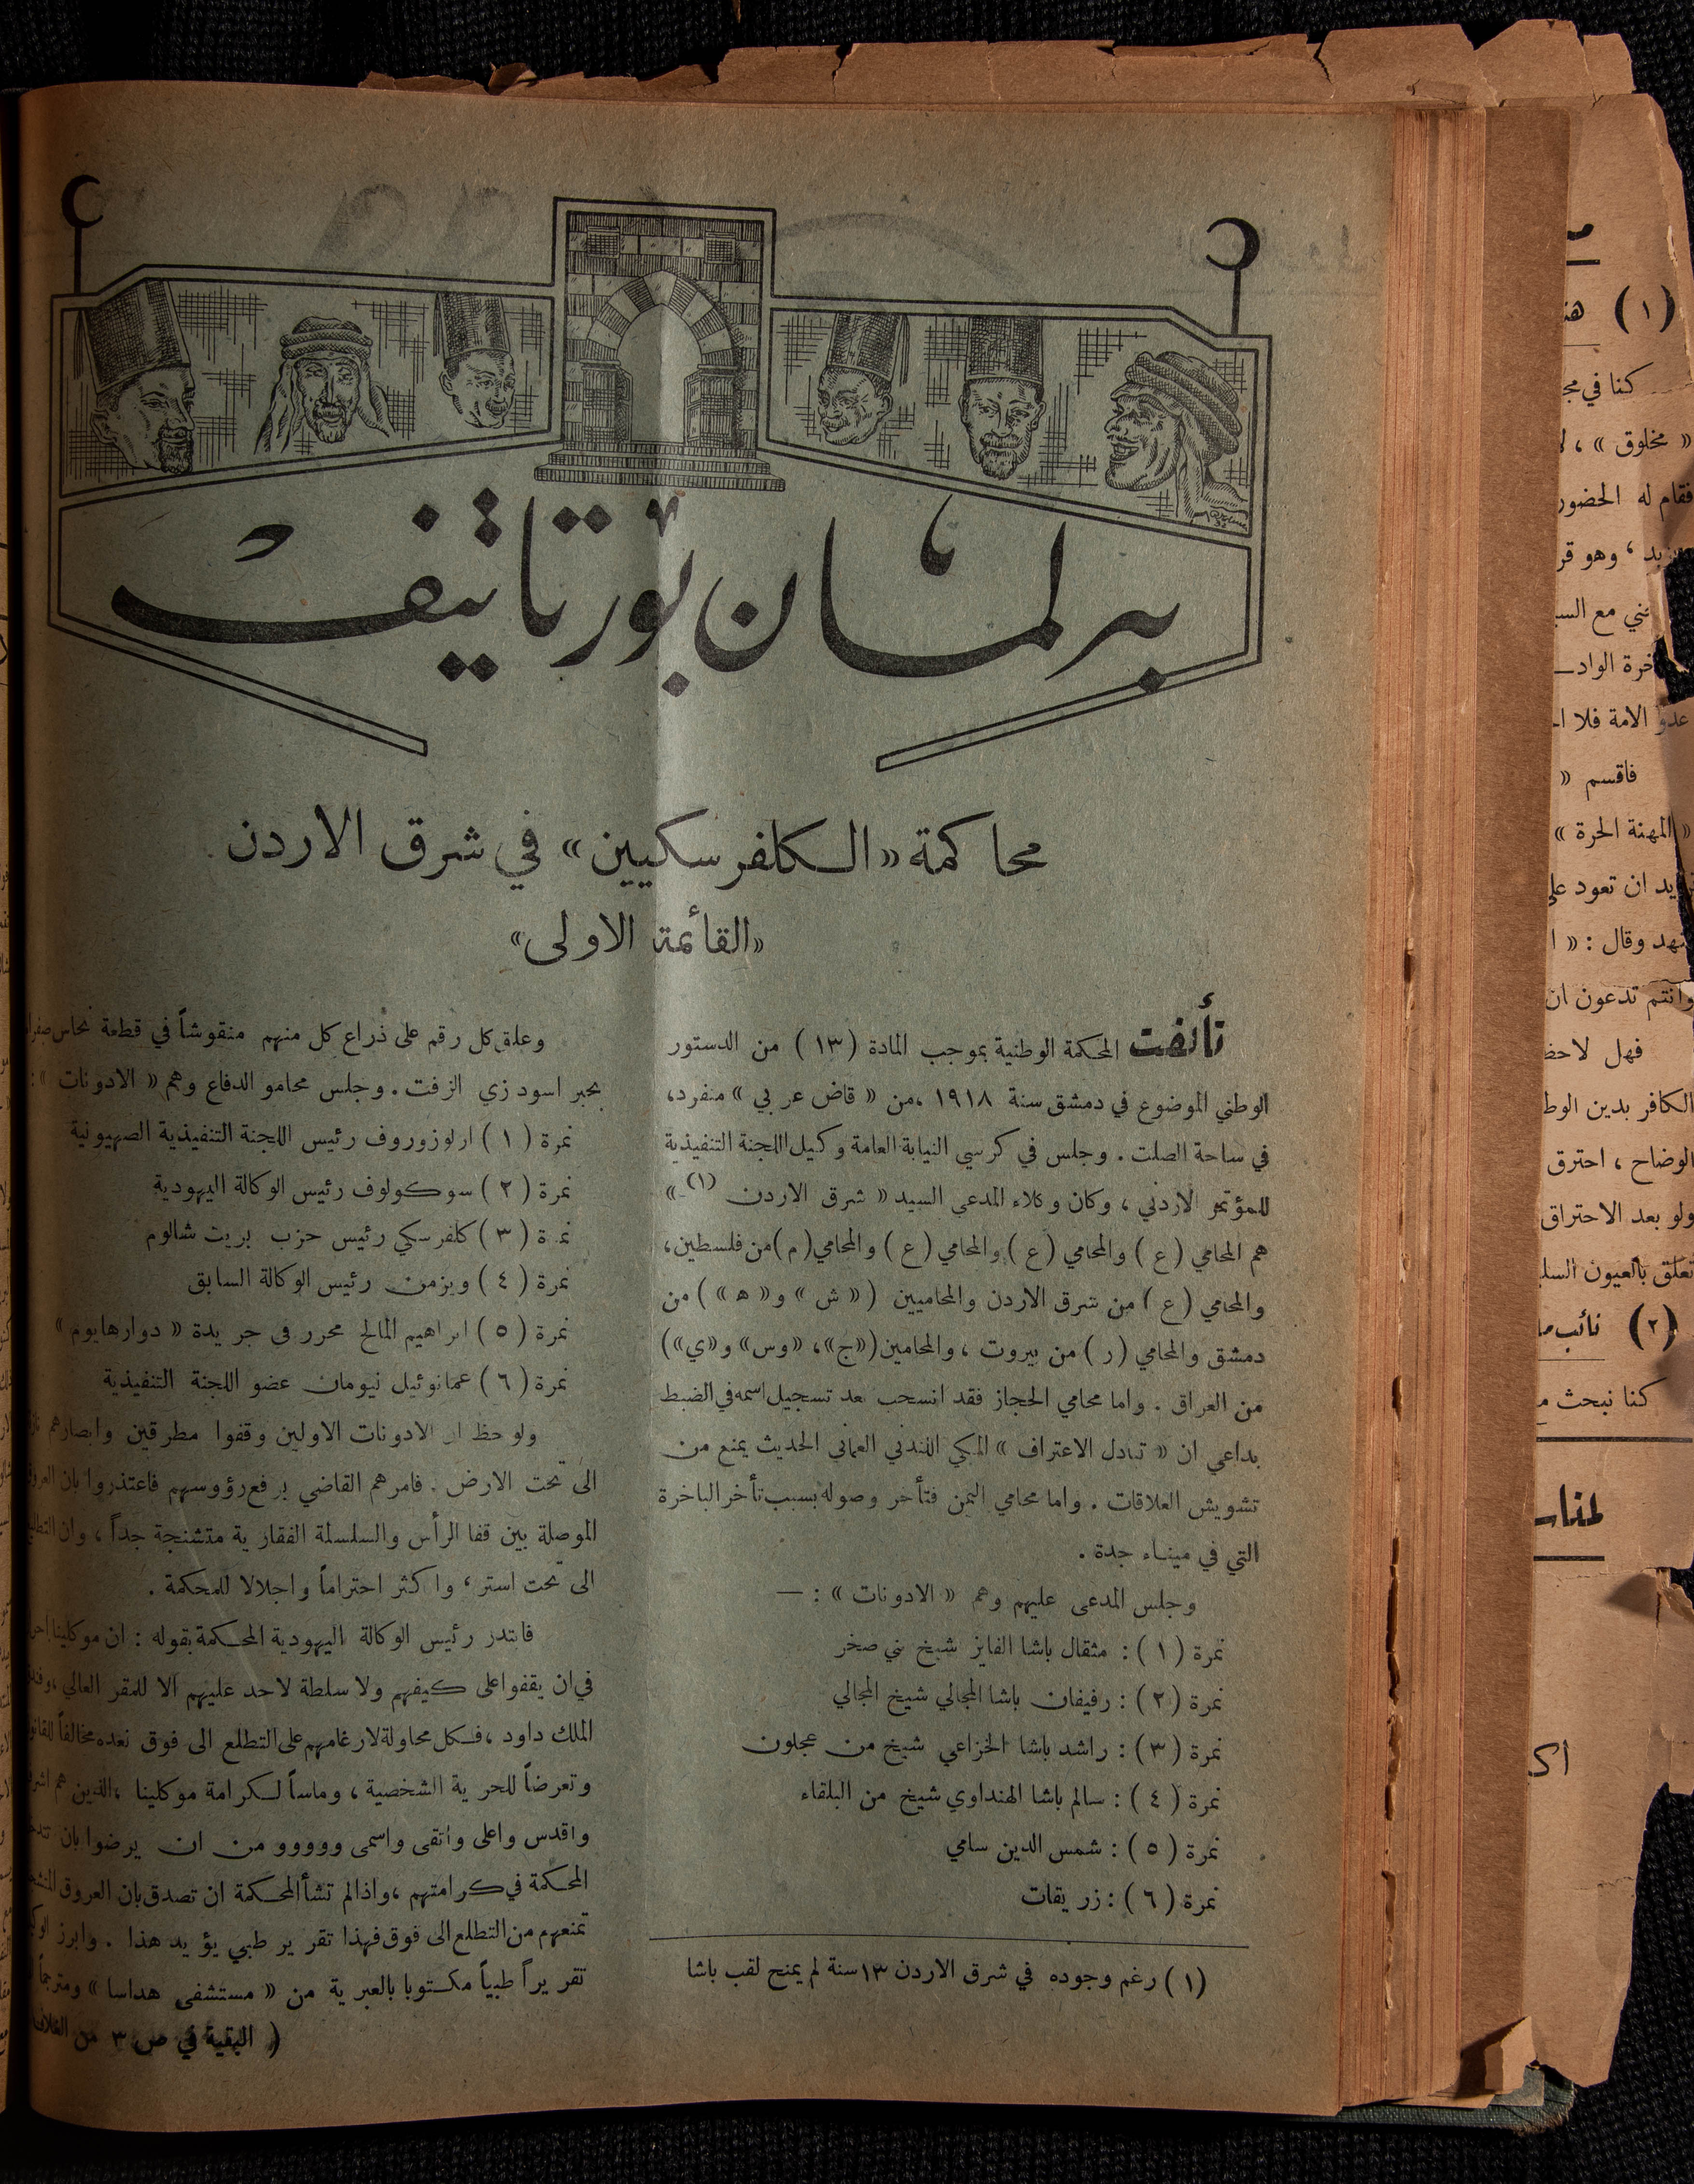 برلمان بورتاتيف
محاكمة «الكلفرسكيين» في شرق الاردن
«القائمة الاولى»
تألفت المحكمة الوطنية بموجب المادة (١٣) من الدستور
الوطني الموضوع في دمشق سنة ١٩١٨ ،من «قاض عربي» منفرد،
في ساحة الصلت . وجلس في كرسي النيابة العامة وكيل اللجنة التنفيذية
للمؤتمر الاردني ، وكان وكلاء المدعي السيد «شرق الاردن (١)»
هم المحامي (ع) والمحامي (ع) والمحامي (ع) والمحامي (م) من فلسطين،
والمحامي (ع) من شرق الاردن والمحاميين («ش» و«ه») من
دمشق والمحامي (ر) من بيروت ، والمحامين («ج»، «وس» و«ي»)
من العراق . واما محامي الحجاز فقد انسحب بعد تسجيل اسمه في الضبط
بداعي ان «تبادل الاعتراف» المكي اللندني العماني الحديث يمنع من
تشويش العلاقات . واما محامي اليمن فتأخر وصوله بسبب تأخر الباخرة
التي في ميناء جدة .
وجلس المدعى عليهم وهم «الادونات» : —
نمرة (١) : مثقال باشا الفايز شيخ بني صخر
نمرة (٢) : رفيفان باشا المجالي شيخ المجالي
نمرة (٣) : راشد باشا الخزاعي شيخ من عجلون
نمرة (٤) : سالم باشا الهنداوي شيخ من البلقاء
نمرة (٥) : شمس الدين سامي
نمرة (٦) : زريقات
(١) رغم وجوده في شرق الاردن ١٣ سنة لم يمنح لقب باشا
وعلق كل رقم على ذراع كل منهم منقوشاً في قطعة نحاس
بحبر اسود زي الزفت . وجلس محامو الدفاع وهم «الادونات» :
نمرة (١) ارلوزوروف رئيس اللجنة التنفيذية الصهيونية
نمرة (٢) سوكولوف رئيس الوكالة اليهودية
نمرة (٣) كلفرسكي رئيس حزب بريت شالوم
نمرة (٤) ويزمن رئيس الوكالة السابق
نمرة (٥) ابراهيم المالح محرر في جريدة «دوارهايوم»
نمرة (٦) عمانوئيل نيومان عضو اللجنة التنفيذية
ولوحظ ان الادونات الاولين وقفوا مطرقين وابصارهم
الى تحت الارض . فامرهم القاضي برفع رؤوسهم فاعتذروا بان
الموصلة بين قفا الرأس والسلسلة الفقارية متشنجة جداً ، وان
الى تحت استر ، واكثر احتراماً واجلالا للمحكمة .
فابتدر رئيس الوكالة اليهودية المحكمة بقوله : ان موكلينا
في ان يقفوا على كيفهم ولا سلطة لاحد عليهم الا للمقر العالي
الملك داود ، فكل محاولة لارغامهم على التطلع الى فوق نعده مخالفاً
وتعرضاً للحرية الشخصية ، وماساً لكرامة موكلينا ، الذين هم
واقدس واعلى واتقى واسمى وووووو من ان يرضوا بان
المحكمة في كرامتهم ، واذا لم تشأ المحكمة ان تصدق بان العروق
تمنعهم من التطلع الى فوق فهذا تقرير طبي يؤيد هذا . وابرز
تقريراً طبياً مكتوبا بالعبرية من «مستشفى هداسا» ومترجماً
( البقية في ص ٣ من الغلاف
(١)
كنا في
« مخلوق » ،
فقام له الحضور
وهو
مع
عدو الامة فلا
فاقسم «
« المهنة الحرة »
ان تعود
وقال : «
وانتم تدعون ان
فهل
الكافر بدين
الوضاح ، احترق
ولو بعد الاحتراق
تعلق بالعيون
(٢)
كنا نبحث